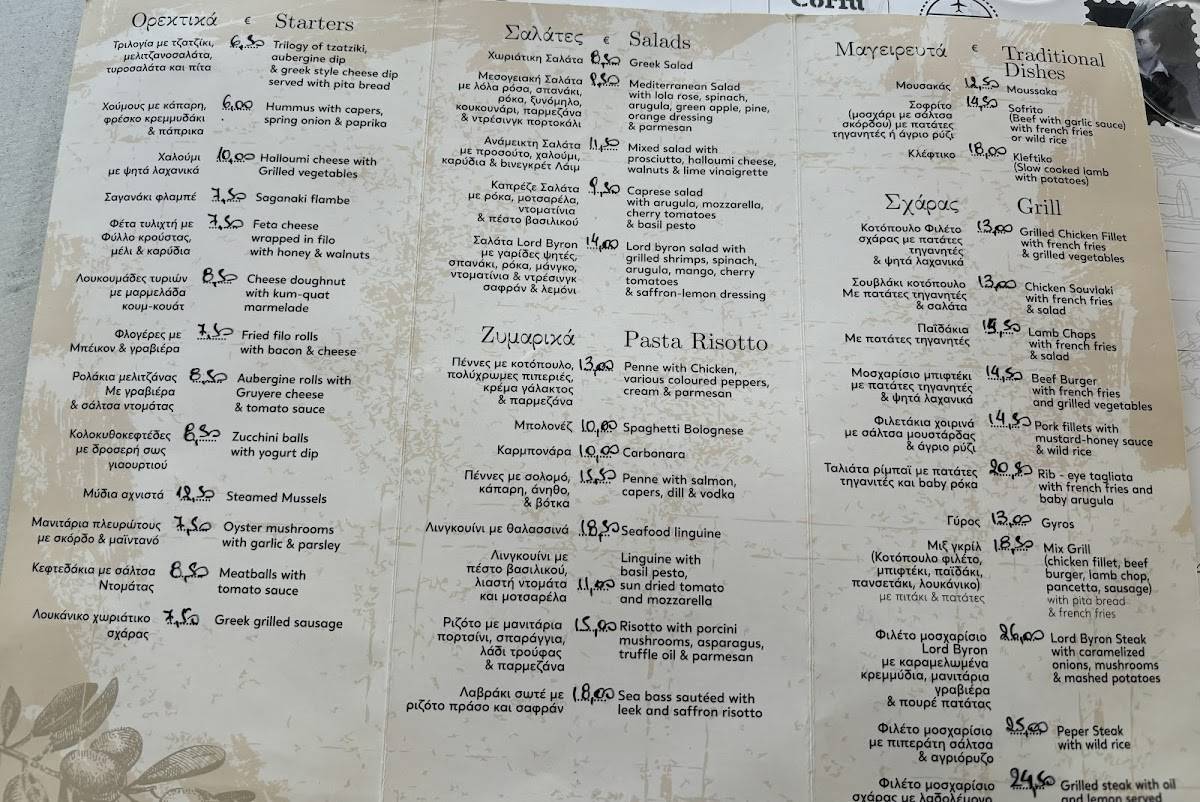 Corfu
Ορεκτικά € Starters
Τριλογία με τζατζίκι, 6,50 Trilogy of tzatziki,
μελιτζανοσαλάτα, aubergine dip
τυροσαλάτα και πίτα & greek style cheese dip
served with pita bread
Χούμους με κάπαρη, 6,00 Hummus with capers,
φρέσκο κρεμμυδάκι spring onion & paprika
& πάπρικα
Χαλούμι 10,00 Halloumi cheese with
με ψητά λαχανικά Grilled vegetables
Σαγανάκι φλαμπέ 7,50 Saganaki flambe
Φέτα τυλιχτή με 7,50 Feta cheese
Φύλλο κρούστας, wrapped in filo
μέλι & καρύδια with honey & walnuts
Λουκουμάδες τυριών 8,50 Cheese doughnut
με μαρμελάδα with kum-quat
κουμ-κουάτ marmelade
Φλογέρες με 7,50 Fried filo rolls
Μπέικον & γραβιέρα with bacon & cheese
Ρολάκια μελιτζάνας 8,50 Aubergine rolls with
Με γραβιέρα Gruyere cheese
& σάλτσα ντομάτας & tomato sauce
Κολοκυθοκεφτέδες 6,50 Zucchini balls
με δροσερή σως with yogurt dip
γιαουρτιού
Μύδια αχνιστά 12,50 Steamed Mussels
Μανιτάρια πλευρώτους 7,50 Oyster mushrooms
με σκόρδο & μαϊντανό with garlic & parsley
Κεφτεδάκια με σάλτσα 8,50 Meatballs with
Ντομάτας tomato sauce
Λουκάνικο χωριάτικο 7,50 Greek grilled sausage
σχάρας
Σαλάτες € Salads
Χωριάτικη Σαλάτα 8,50 Greek Salad
Μεσογειακή Σαλάτα 9,50 Mediterranean Salad
με λόλα ρόσα, σπανάκι, with lola rose, spinach,
ρόκα, ξυνόμηλο, arugula, green apple, pine,
κουκουνάρι, παρμεζάνα orange dressing
& ντρέσινγκ πορτοκάλι & parmesan
Ανάμεικτη Σαλάτα 11,50 Mixed salad with
με προσούτο, χαλούμι, prosciutto, halloumi cheese,
καρύδια & βινεγκρέτ Λάιμ walnuts & lime vinaigrette
Καπρέζε Σαλάτα 9,50 Caprese salad
με ρόκα, μοτσαρέλα, with arugula, mozzarella,
ντοματίνια cherry tomatoes
& πέστο βασιλικού & basil pesto
Σαλάτα Lord Byron 14,00 Lord byron salad with
με γαρίδες ψητές, grilled shrimps, spinach,
σπανάκι, ρόκα, μάνγκο, arugula, mango, cherry
ντοματίνια & ντρέσινγκ tomatoes
σαφράν & λεμόνι & saffron-lemon dressing
Ζυμαρικά Pasta Risotto
Πέννες με κοτόπουλο, 13,00 Penne with Chicken,
πολύχρωμες πιπεριές, various coloured peppers,
κρέμα γάλακτος cream & parmesan
& παρμεζάνα
Μπολονέζ 10,00 Spaghetti Bolognese
Καρμπονάρα 10,00 Carbonara
Πέννες με σολομό, 15,50 Penne with salmon,
κάπαρη, άνηθο, capers, dill & vodka
& βότκα
Λινγκουίνι με θαλασσινά 18,50 Seafood linguine
Λινγκουίνι με Linguine with
πέστο βασιλικού, basil pesto,
λιαστή ντομάτα 11,00 sun dried tomato
και μοτσαρέλα and mozzarella
Ριζότο με μανιτάρια 15,00 Risotto with porcini
πορτσίνι, σπαράγγια, mushrooms, asparagus,
λάδι τρούφας truffle oil & parmesan
& παρμεζάνα
Λαβράκι σωτέ με 18,00 Sea bass sautéed with
ριζότο πράσο και σαφράν leek and saffron risotto
Μαγειρευτά € Traditional
Dishes
Μουσακάς 12,50 Moussaka
Σοφρίτο 14,50 Sofrito
(μοσχάρι με σάλτσα (Beef with garlic sauce)
σκόρδου) με πατάτες with french fries
τηγανητές ή άγριο ρύζι or wild rice
Κλέφτικο 18,00 Kleftiko
(Slow cooked lamb
with potatoes)
Σχάρας Grill
Κοτόπουλο Φιλέτο 13,00 Grilled Chicken Fillet
σχάρας με πατάτες with french fries
τηγανητές & grilled vegetables
& ψητά λαχανικά
Σουβλάκι κοτόπουλο 13,00 Chicken Souvlaki
Με πατάτες τηγανητές with french fries
& σαλάτα & salad
Παϊδάκια 15,50 Lamb Chops
Με πατάτες τηγανητές with french fries
& salad
Μοσχαρίσιο μπιφτέκι 14,50 Beef Burger
με πατάτες τηγανητές with french fries
& ψητά λαχανικά and grilled vegetables
Φιλετάκια χοιρινά 14,50 Pork fillets with
με σάλτσα μουστάρδας mustard-honey sauce
& άγριο ρύζι & wild rice
Ταλιάτα ρίμπαϊ με πατάτες 20,50 Rib - eye tagliata
τηγανιτές και baby ρόκα with french fries and
baby arugula
Γύρος 13,00 Gyros
Μιξ γκρίλ 18,50 Mix Grill
(Κοτόπουλο φιλέτο, (chicken fillet, beef
μπιφτέκι, παϊδάκι, burger, lamb chop,
πανσετάκι, λουκάνικο) pancetta, sausage)
με πιτάκι & πατάτες with pita bread
& french fries
Φιλέτο μοσχαρίσιο 26,00 Lord Byron Steak
Lord Byron with caramelized
με καραμελωμένα onions, mushrooms
κρεμμύδια, μανιτάρια & mashed potatoes
γραβιέρα
& πουρέ πατάτας
Φιλέτο μοσχαρίσιο 25,00 Peper Steak
με πιπεράτη σάλτσα with wild rice
& αγριόρυζο
Φιλέτο μοσχαρίσιο 24,50 Grilled steak with oil
σχάρας με λαδολέμονο and lemon served